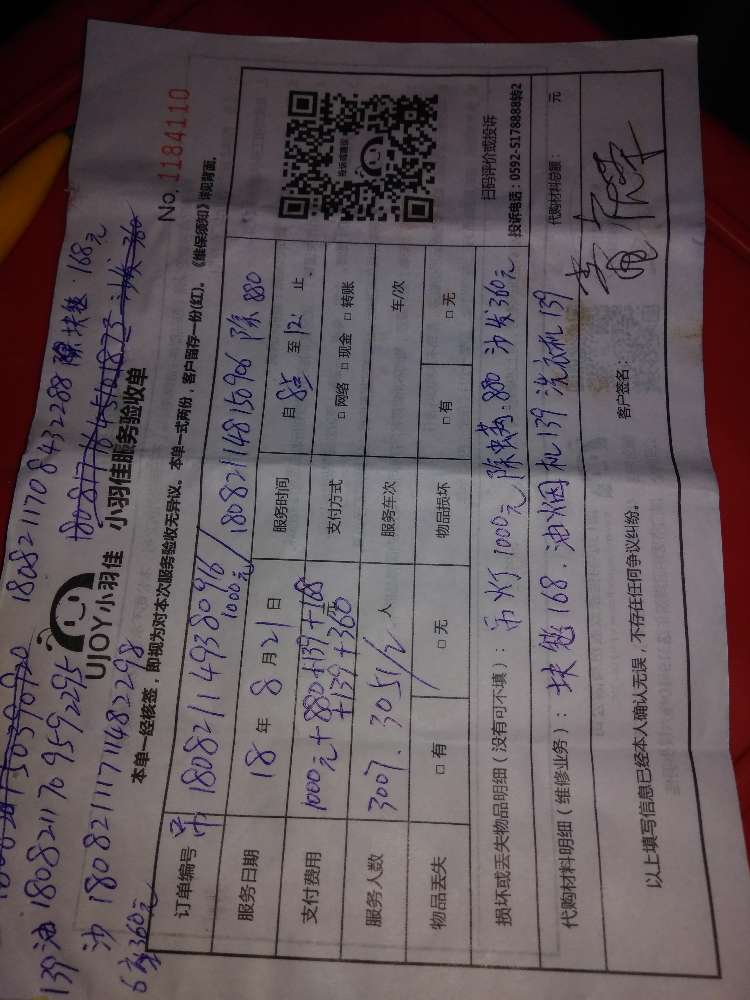 139油 18082117095922​95 18082117084322​88 除块毯:168元
沙 180821117114822​98
6座360元
UJOY小羽佳 小羽佳服务验收单
No. 1184110
本单一经核签，即视为对本次服务验收无异议。本单一式两份，客户留存一份(红)。《维保须知》详见背面。
订单编号 吊 18082114938​0916 / 18082114815​0906 除880
1000元
服务日期 18 年 8 月 21 日 服务时间 自 8点 至 12 止
支付费用 1000元+880+139+168 支付方式 □ 网络 □ 现金 □ 转账
+139+360
服务人数 3007. 3051/2 人 服务车次 车/次
物品丢失 □ 有 □ 无 物品损坏 □ 有 □ 无
投诉或建议
扫码评价或投诉
投诉电话：0592-5178888转2
损坏或丢失物品明细（没有可不填）： 吊灯1000元 除螨:880 沙发360元
代购材料明细（维修业务）： 块毯168. 油烟机139 洗衣机139
代购材料总额： 元
以上填写信息已经本人确认无误，不存在任何争议纠纷。 客户签名：